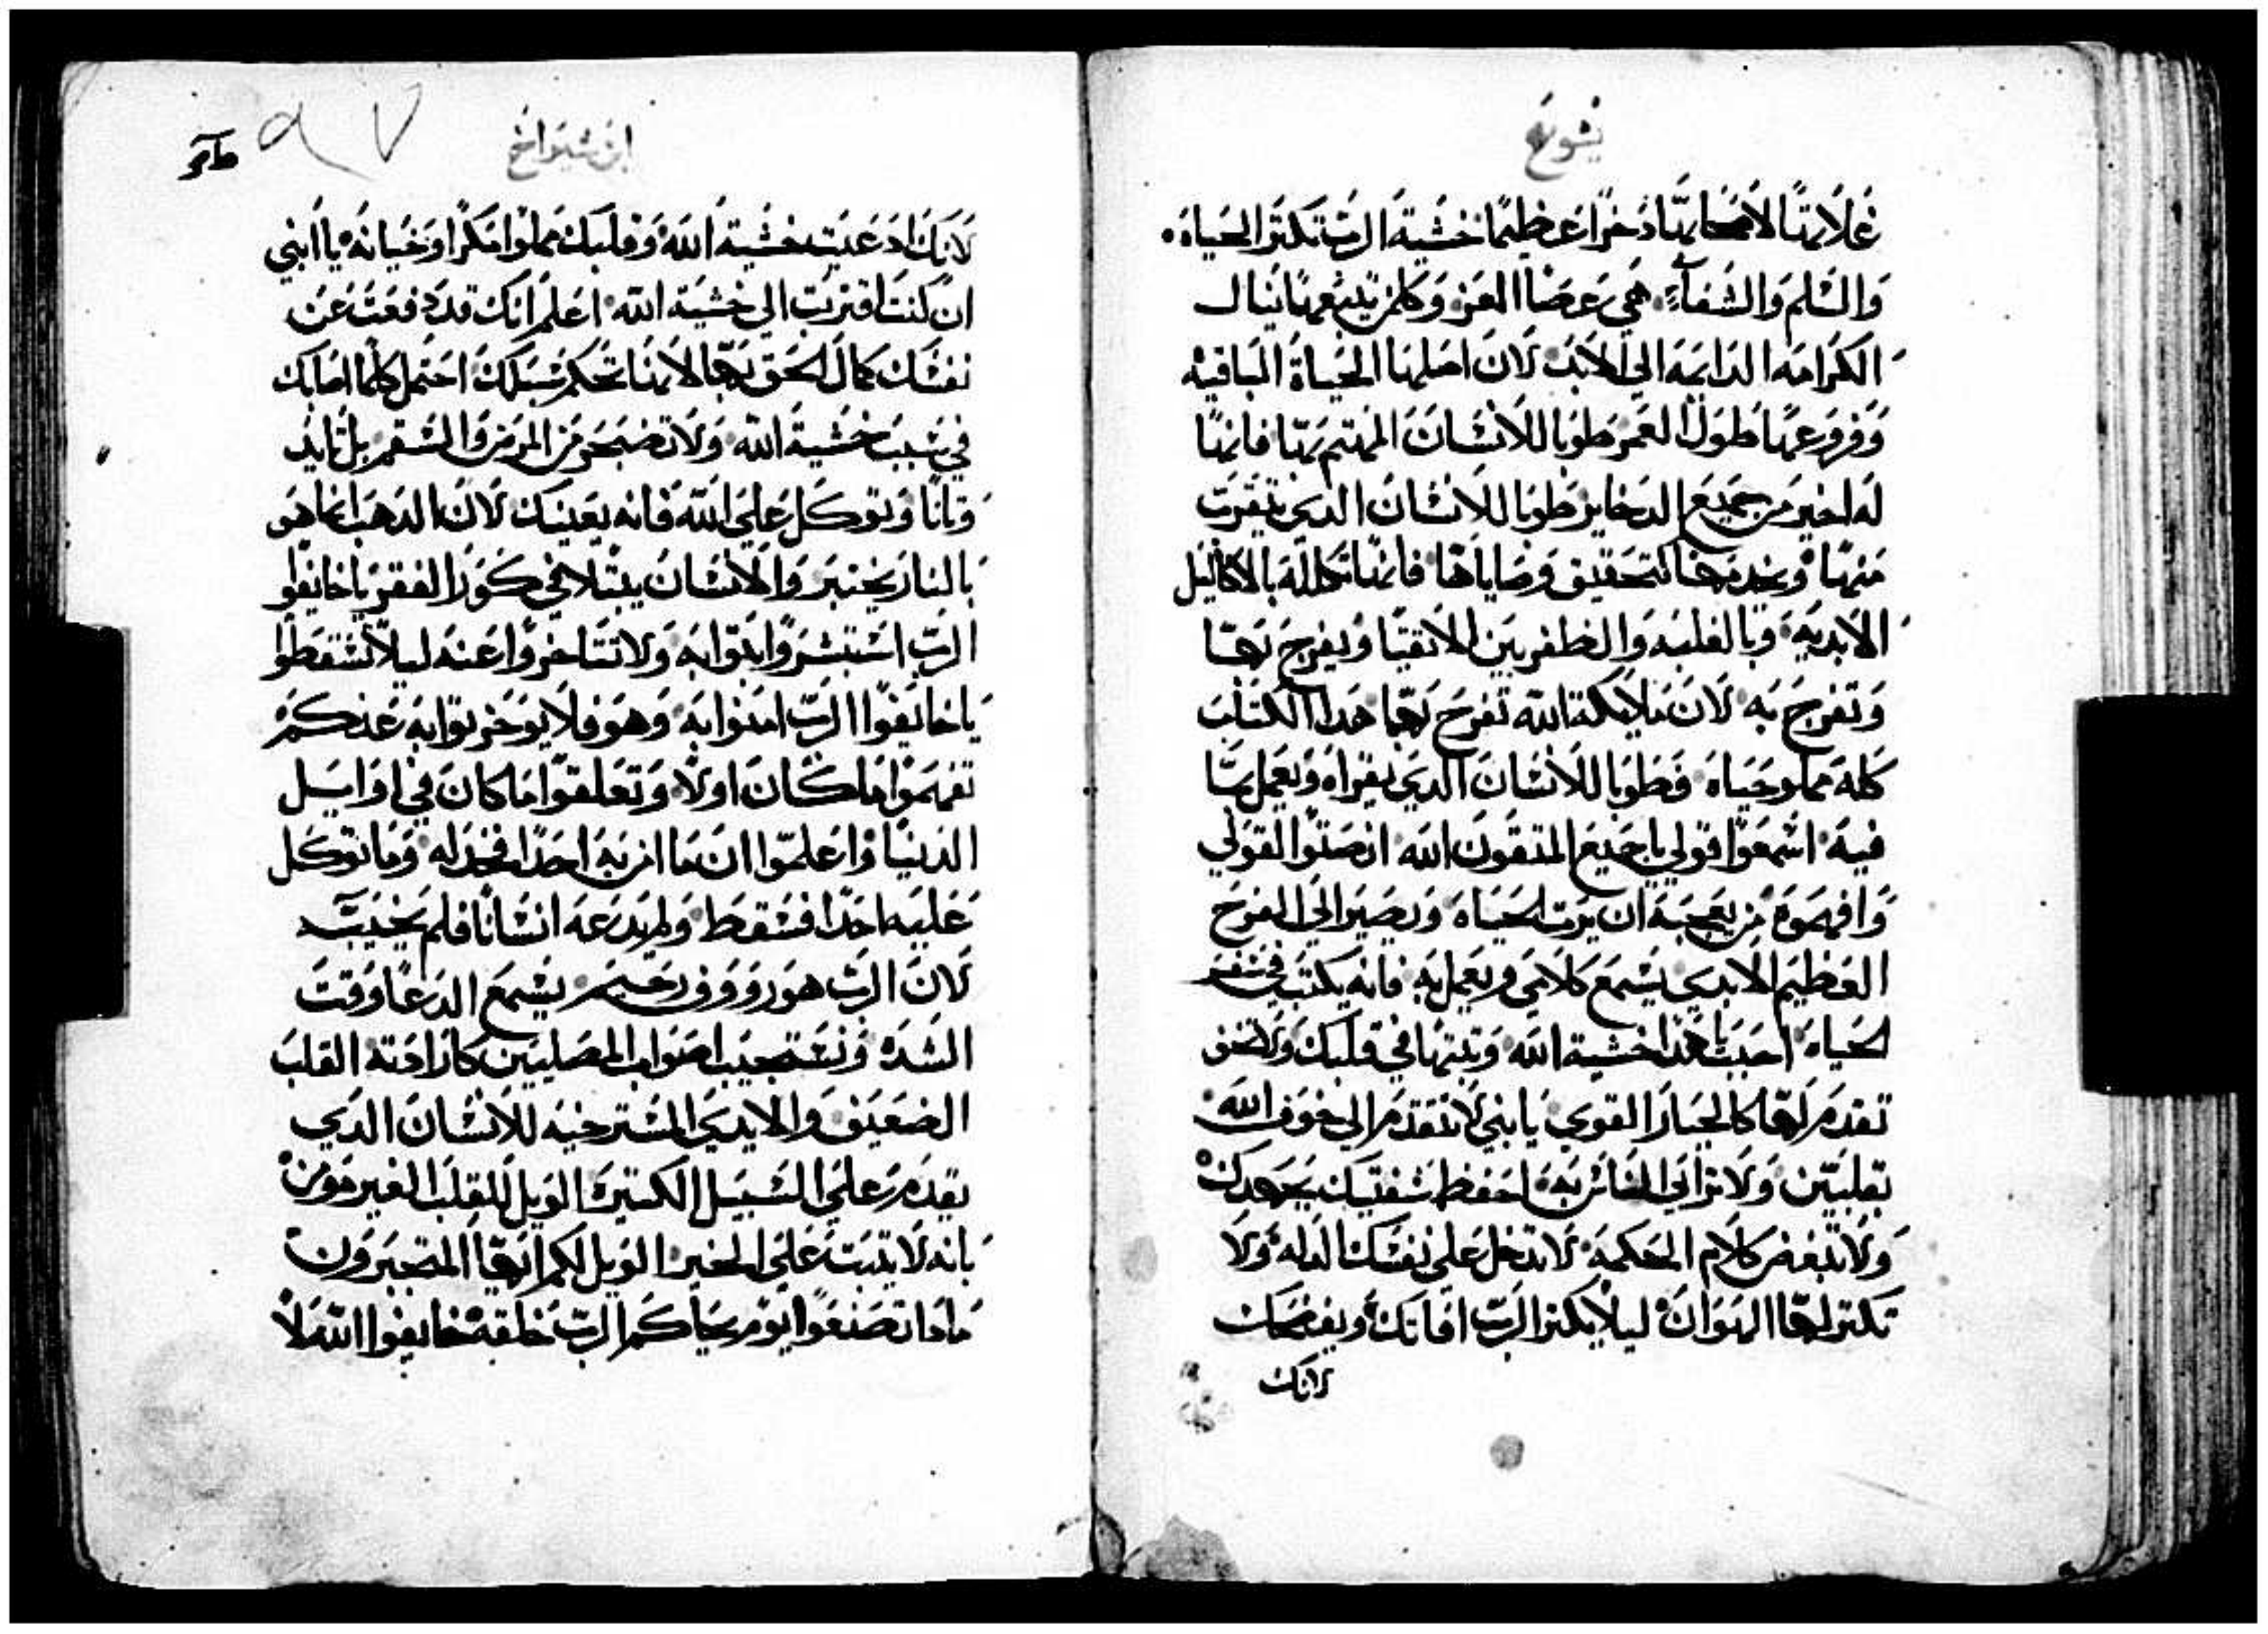 يشوع
غلاتها لاصحابها دخرا عظيما خشية الرب تكتر الحياه
والسلم والشفاء هي عصا العز وكلمن يتبعها ينال
الكرامه الدايمه الي الابد لان اصلها الحياة الباقيه
وفروعها طول العمر طوبا للانسان المهتم بها فانها
له اخير من جميع الدخاير طوبا للانسان الدي يتقرب
منها ويخدمها لتحقيق وصاياها فانها تكلله بالاكاليل
الابديه وبالغلبه والظفر بين الاتقيا ويفرح بها
وتفرح به لان ملايكة الله تفرح بها هدا الكتاب
كله مملو حياه فطوبا للانسان الدي يقراه ويعمل بما
فيه اسمعوا قولي يا جميع المتقون الله انصتوا القولي
وافهموه من يعجبه ان يرت الحياه ويصير الي الفرح
العظيم الابدي يسمع كلامي ويعمل به فانه يكتب في سفر
الحياه احبب يا هدا خشية الله وتبتها في قلبك ولا تخف
تقدم لها كالجبار القوي يا بني لا تتقدم الي خوف الله
بقلبين ولا تراني الناس به احفظ شفتيك بجهدك
ولا تبغض كلام الحكمه لا تدخل علي نفسك المدله ولا
تكتر لها الهوان ليلا يكتر الرب افاتك ويفضحك
لانك
ابن شيراخ
لانك ادعيت خشية الله وقلبك مملوا مكرا وخيانه يا ابني
ان كنت اقتربت الي خشية الله اعلم انك قد دفعت عن
نفسك كمال الحق بها لانها تحكم سبلك احتمل كلما اصابك
في سبب خشية الله ولا تضجر من المرض والسقم بل تايد
وتانا وتوكل علي الله فانه يعينك لان الدهب انما هو
بالنار يختبر والانسان يبتلا في كور الفقر يا خايفوا
الرب استبشروا بتوابه ولا تتاخروا عنه ليلا تسقطوا
يا خايفوا الرب امنوا به وهو فلا يوخر توابه عنكم
تفهموا ما كان اولا وتعلقوا ما كان في اوايل
الدنيا واعلموا ان ما امن به احدا فخدله وما توكل
عليه احدا فسقط ولم يدعه انسانا فلم يجيب
لان الرب هو رووف رحيم يسمع الدعا وقت
الشده ونستجيب اصوات المصليين كارادته القلب
الضعيف والايدي المسترخيه للانسان الدي
يقدم علي السبيل الكتيره الويل للقلب الغير مومن
بانه لا يتبت علي الخير الويل لكم ايها المتجبرون
مادا تصنعوا يوم يحاكم الرب خلقه خايفوا الله لا